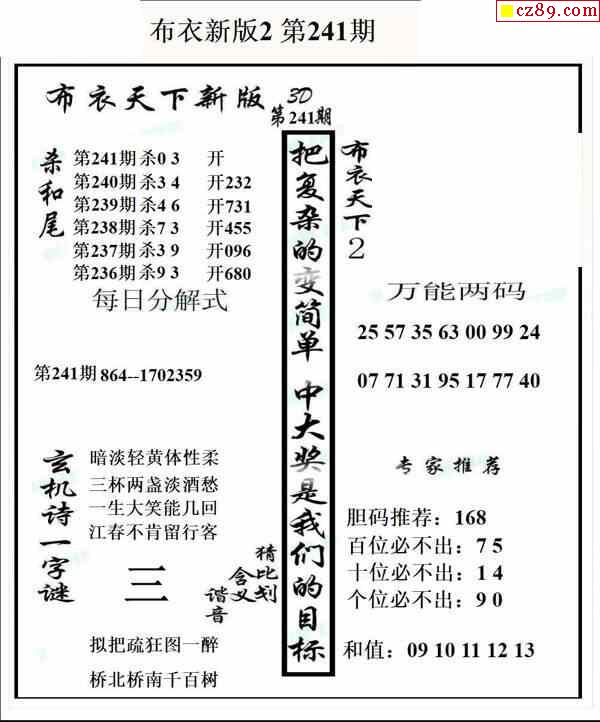 cz89.com
布衣新版2 第241期
布衣天下新版 3D
第241期
杀和尾
第241期 杀0 3 开
第240期 杀3 4 开232
第239期 杀4 6 开731
第238期 杀7 3 开455
第237期 杀3 9 开096
第236期 杀9 3 开680
每日分解式
第241期 864--1702359
玄机诗一字谜
暗淡轻黄体性柔
三杯两盏淡酒愁
一生大笑能几回
江春不肯留行客
三
谐音
含义
猜比划
拟把疏狂图一醉
桥北桥南千百树
把复杂的变简单 中大奖是我们的目标
布衣天下2
万能两码
25 57 35 63 00 99 24
07 71 31 95 17 77 40
专家推荐
胆码推荐：168
百位必不出：7 5
十位必不出：1 4
个位必不出：9 0
和值：09 10 11 12 13